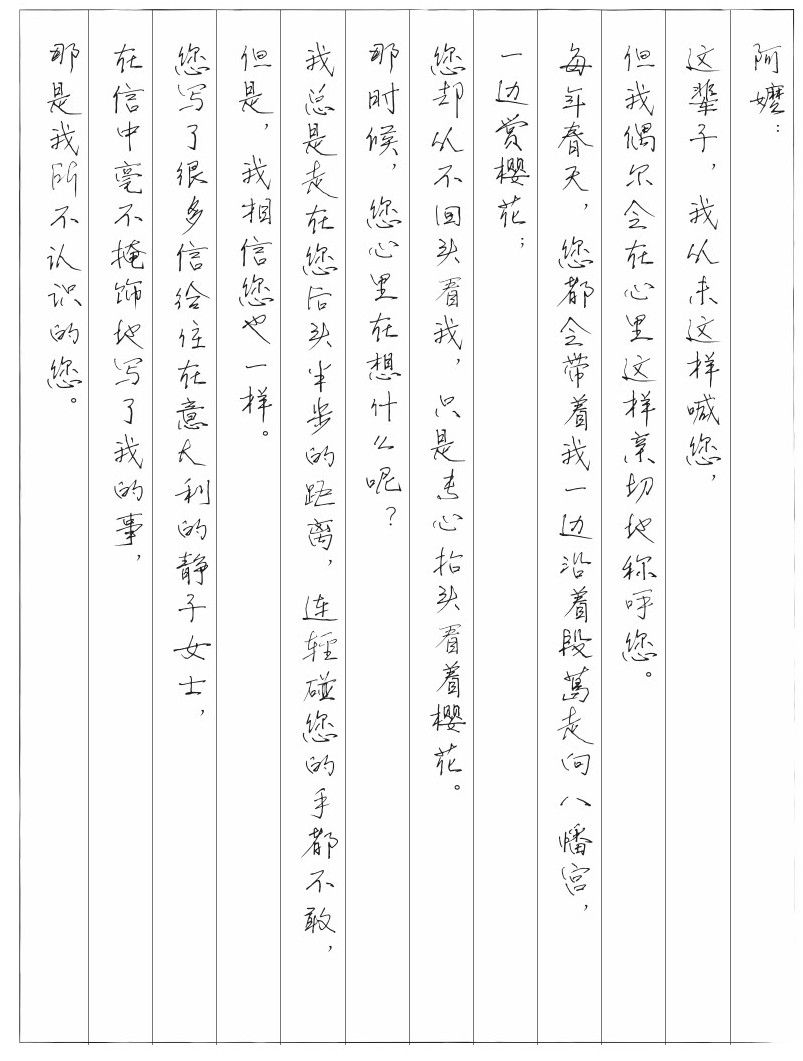 阿嬷：
这辈子，我从未这样喊您，
但我偶尔会在心里这样亲切地称呼您。
每年春天，您都会带着我一边沿着段葛走向八幡宫，
一边赏樱花；
您却从不回头看我，只是专心抬头看着樱花。
那时候，您心里在想什么呢？
我总是走在您后头半步的距离，连轻碰您的手都不敢，
但是，我相信您也一样。
您写了很多信给住在意大利的静子女士，
在信中毫不掩饰地写了我的事，
那是我所不认识的您。